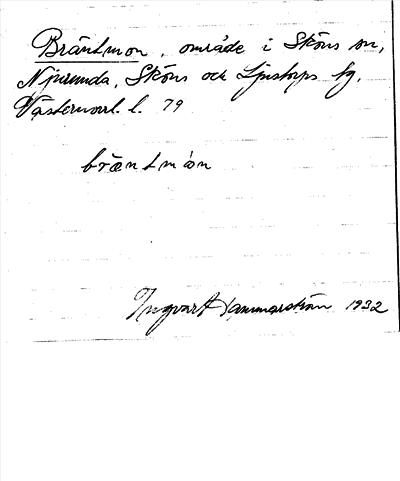 Bräntmon, område i Sköns sn,
Njurunda, Sköns och Ljustorps tg,
Västernorrl. l. 79
bräntmon
Ingvart Hammarström 1932